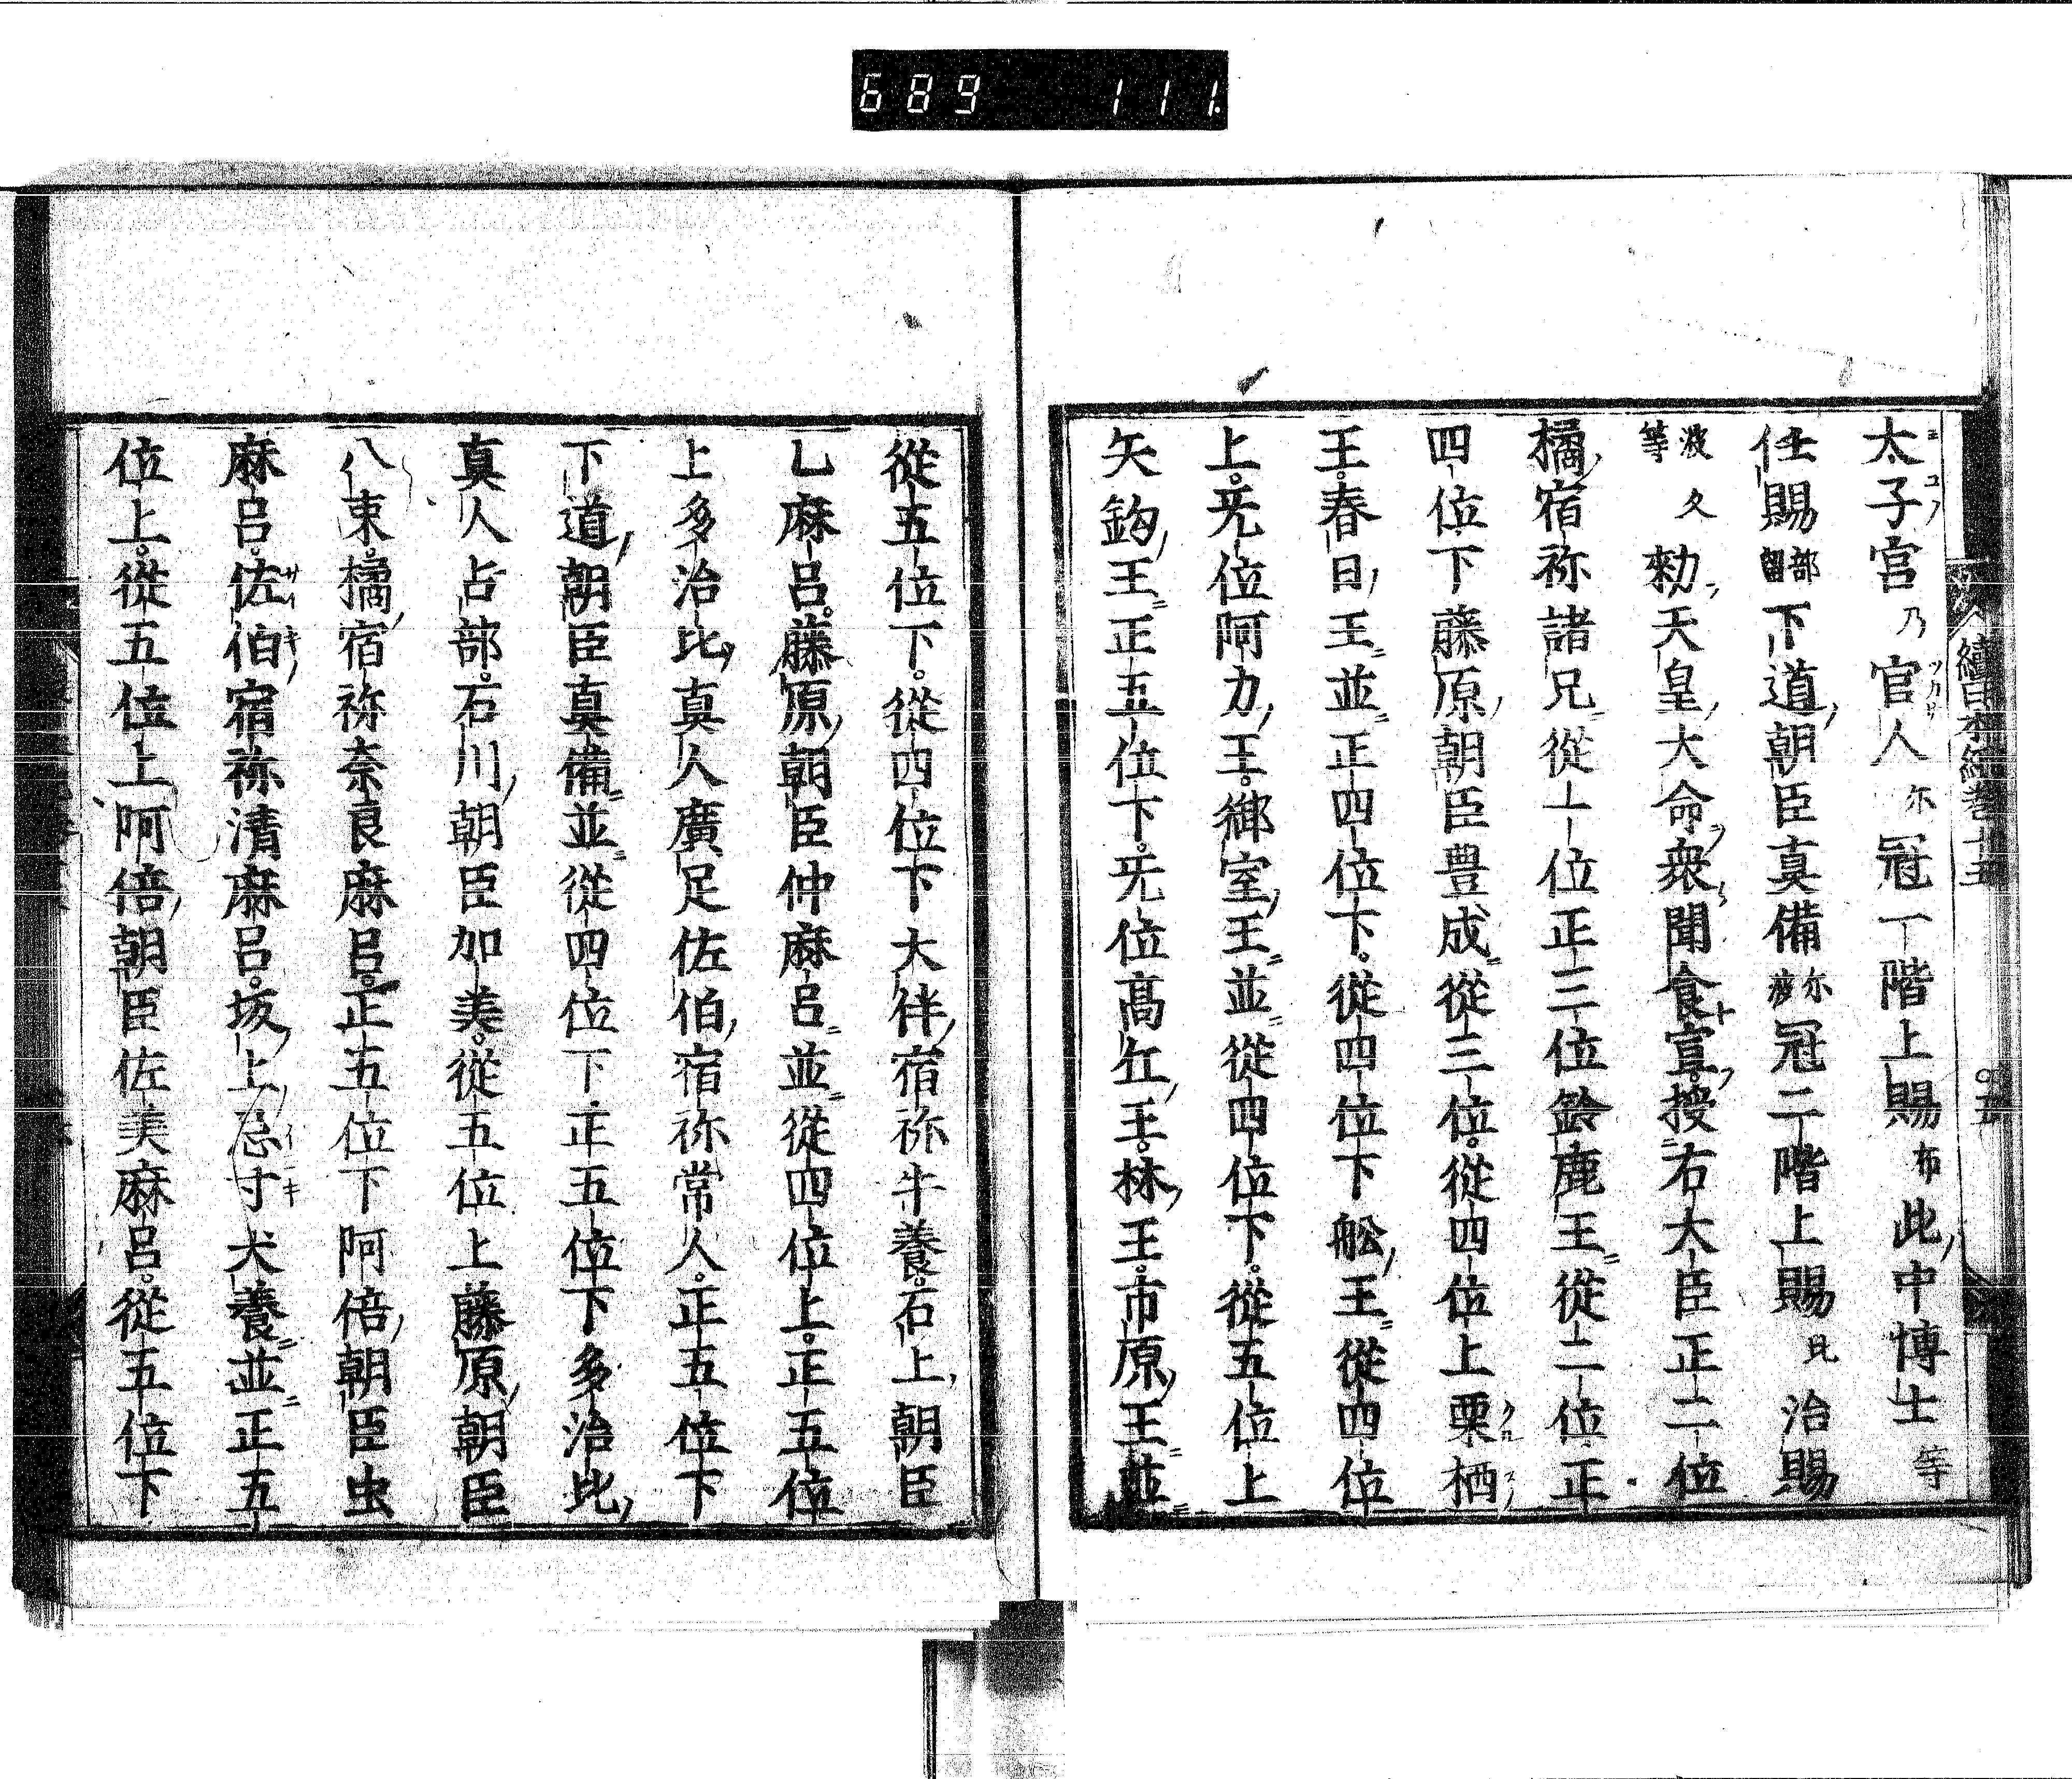 689 111
續日本紀卷十五
太子宮乃官人尓冠一階上賜布此中博士等
任賜部留下道朝臣真備尓波冠二階上賜比治賜
波久等勑天皇大命衆聞食宣授右大臣正二位
橘宿祢諸兄從一位正三位鈴鹿王從二位正
四位下藤原朝臣豊成從三位從四位上栗栖
王春日王並正四位下從四位下舩王從四位
上旡位阿力王御室王並從四位下從五位上
矢鈎王正五位下旡位高丘王林王市原王並
從五位下從四位下大伴宿祢牛養石上朝臣
乙麻呂藤原朝臣仲麻呂並從四位上正五位
上多治比真人廣足佐伯宿祢常人正五位下
下道朝臣真備並從四位下正五位下多治比
真人占部石川朝臣加美從五位上藤原朝臣
八束橘宿祢奈良麻呂正五位下阿倍朝臣虫
麻呂佐伯宿祢清麻呂坂上忌寸犬養並正五
位上從五位上阿倍朝臣佐美麻呂從五位下